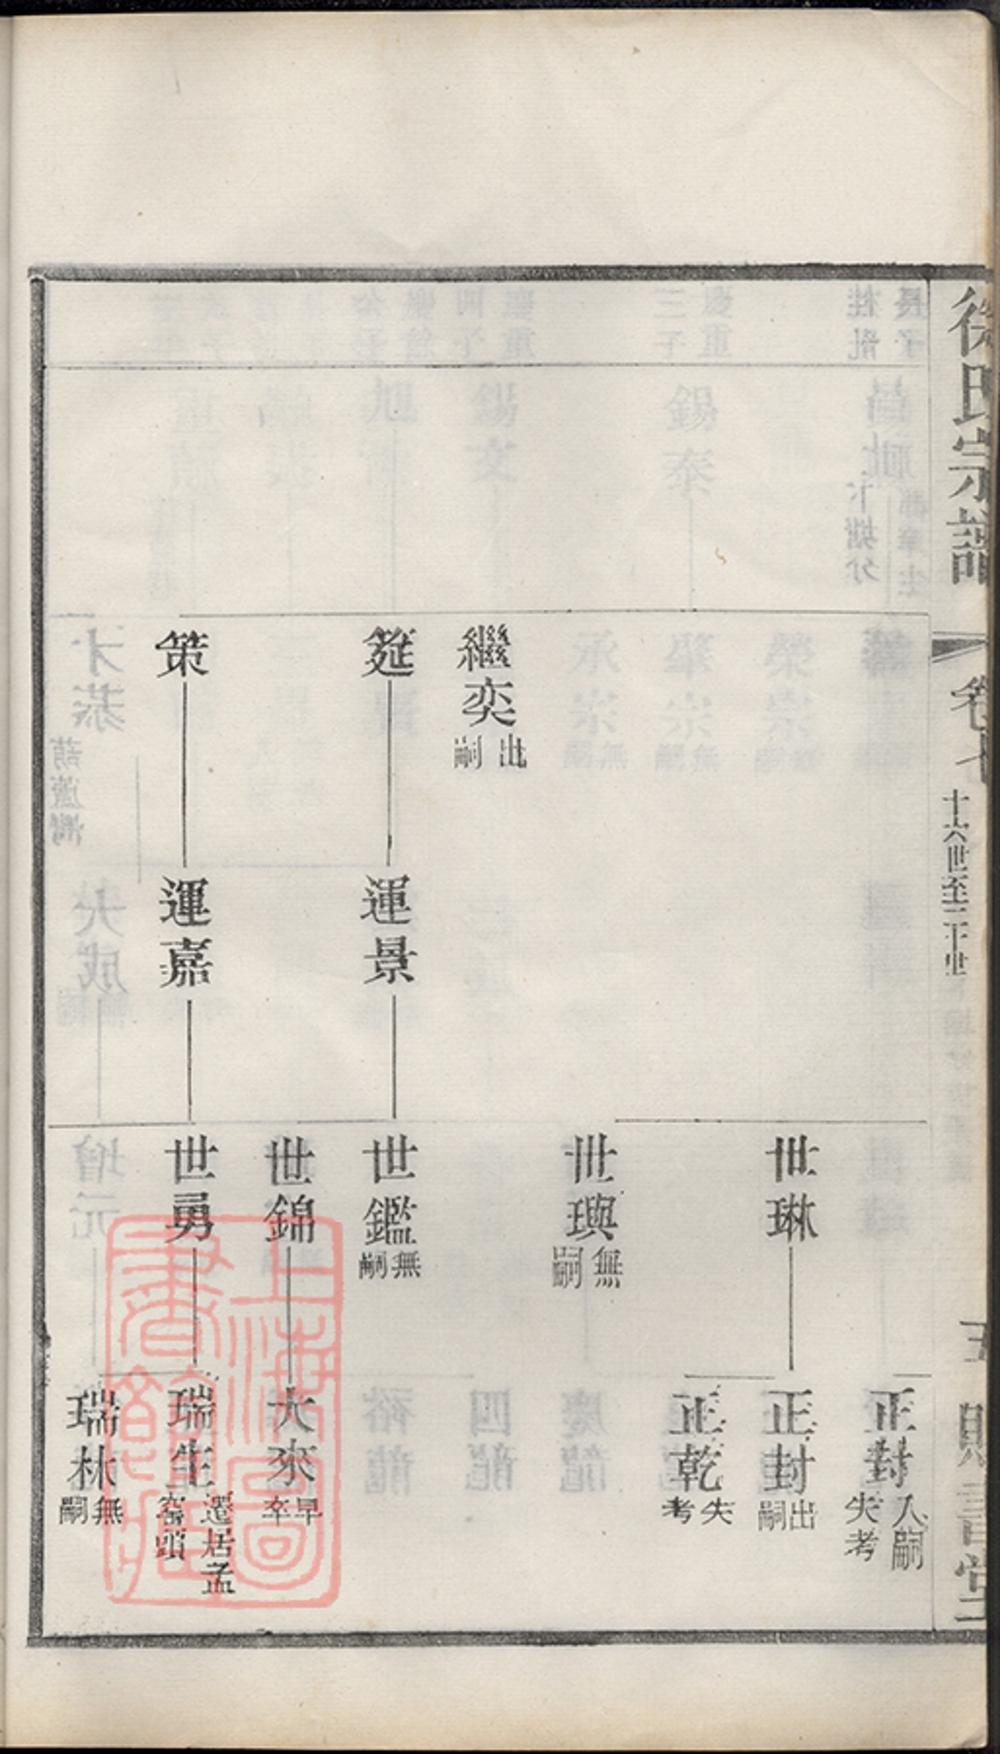 徐氏宗譜
卷七
十六世至二十世
五
賜書堂
繼奕
出嗣
筵
策
運景
運嘉
世琳
世璵
無嗣
世鑑
無嗣
世錦
世勇
正封
入嗣
失考
正封
出嗣
正乾
失考
大來
早卒
瑞生
遷居孟
瑞林
無嗣
上海圖
書館藏